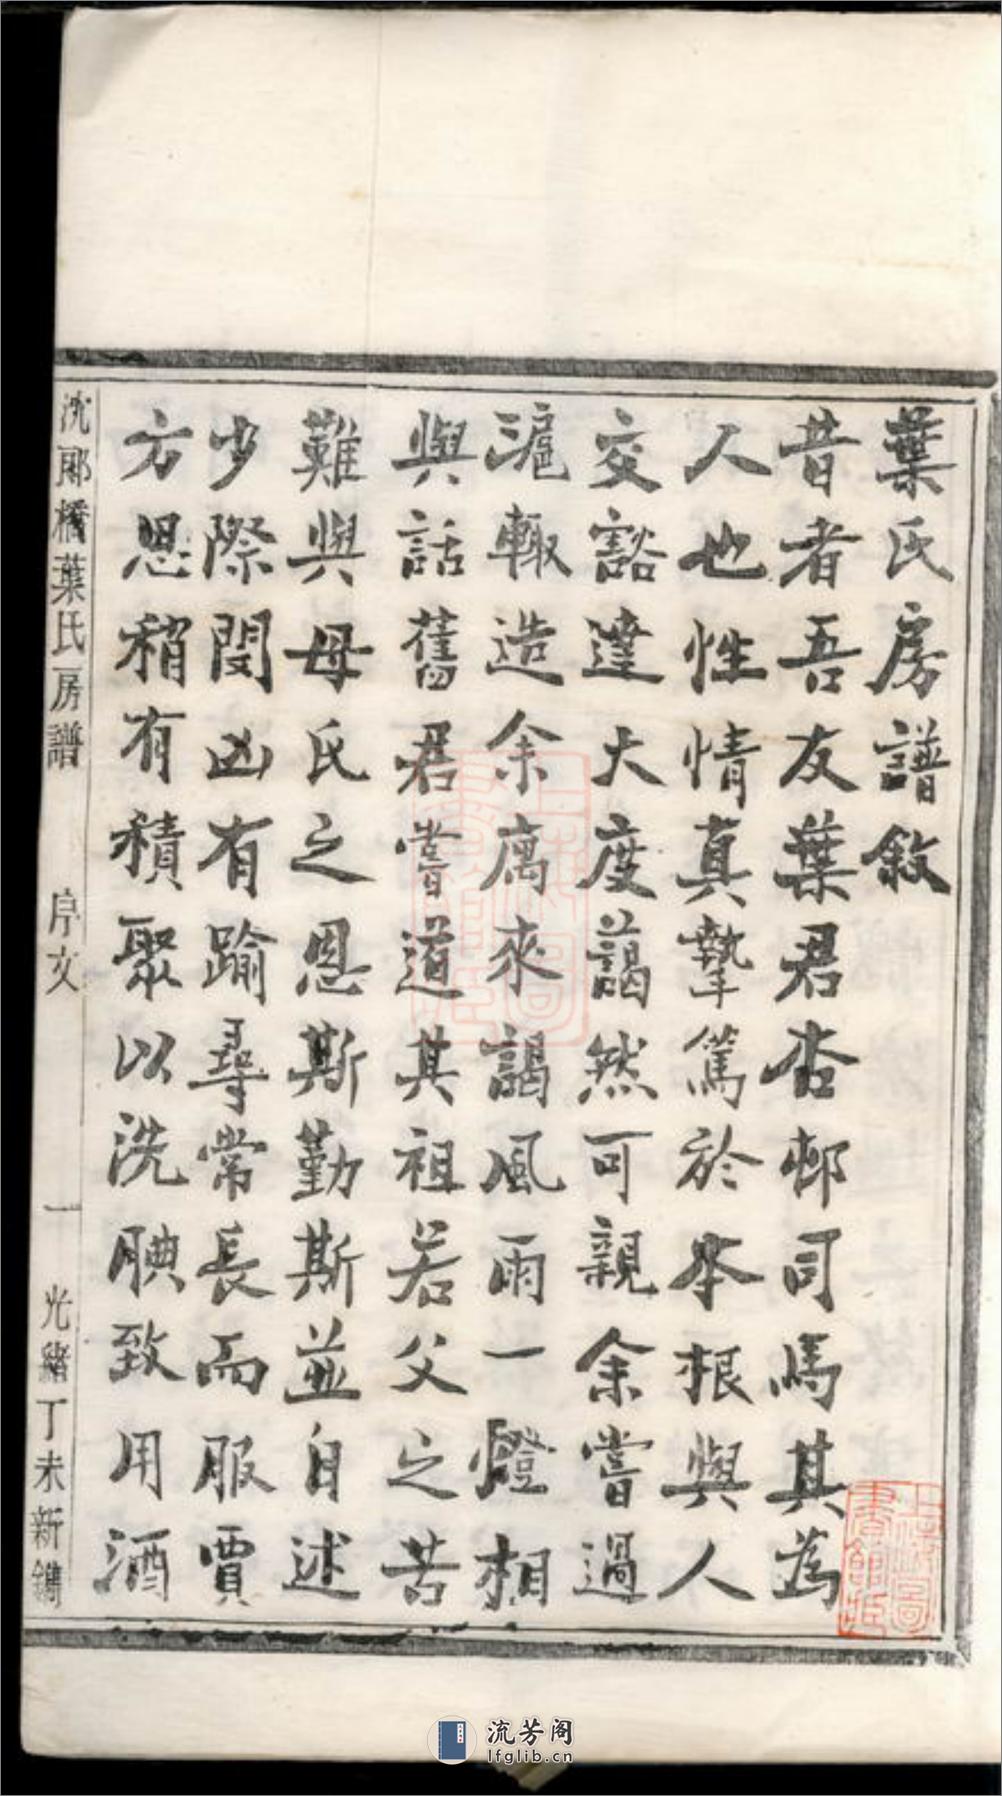 葉氏房譜敘
昔者吾友葉君杏邨司馬其為
人也性情真摯篤於本根與人
交豁達大度藹然可親余嘗過
滬輙造余寓來謁風雨一燈相
與話舊君嘗道其祖若父之苦
難與母氏之恩斯勤斯並自述
少際閔凶有踰尋常長而服賈
方思稍有積聚以洗腆致用酒
沈郎橋葉氏房譜 序文 一 光緒丁未新鐫
上海圖書館藏
上海圖書館藏
流芳阁
lfglib.cn